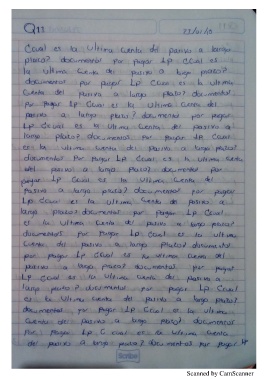 Q11
Cual es la Ultima Cuenta del pasivo a largo
plazo? documentos por pagar Lp Cual es
la ultima Cuenta del pasivo a largo plazo?
documentos por pagar Lp Cual es la ultima
Cuenta del pasivo a largo plazo? documentos
por pagar Lp Cual es la Ultima Cuenta
del pasivo a largo plazo? documentos por
pagar Lp Cual es la Ultima Cuenta del pasivo a
largo plazo? documentos por pagar Lp Cual
es la ultima Cuenta del pasivo a largo plazo?
documentos por Pagar Lp Cual es la Ultima Cuenta
del pasivo a largo plazo? documentos por
pagar Lp Cual es la Ultima Cuenta del
Pasivo a largo plazo? documentos por pagar
Lp Cual es la Ultima Cuenta de pasivo a
largo plazo? documentos por pagar Lp Cual
es la ultima Cuenta del pasivo a largo plazo?
documentos por pagar Lp Cual es la ultima
Cuenta del pasivo a largo plazo? documentos
por pagar Lp Cual es la Ultima Cuenta
del pasivo a largo plazo? documentos por pagar
Lp Cual es la Ultima Cuenta del pasivo a
largo plazo? documentos por pagar Lp Cual
es la Ultima Cuenta del pasivo a largo plazo?
documentos por pagar Lp Cual es la ultima
Cuenta del pasivo a largo plazo? documentos
por pagar Lp Cual es la Ultima Cuenta
del pasivo a largo plazo? documentos por pagar Lp
Scribe
Scanned by CamScanner